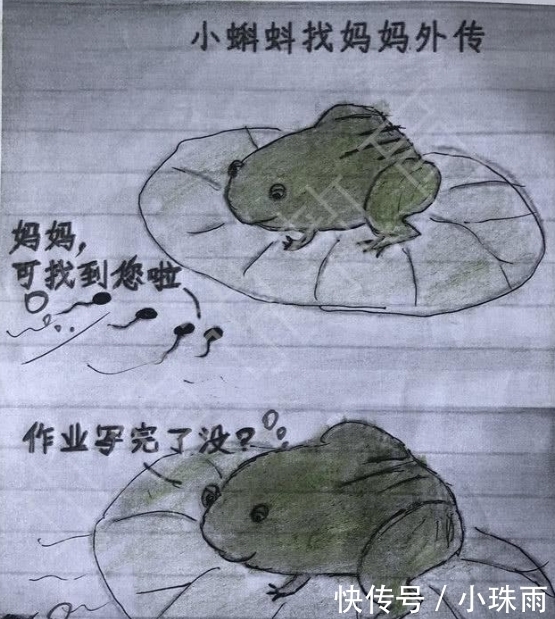 小蝌蚪找妈妈外传
妈妈，
可找到您啦
作业写完了没？
快传号 / 小珠雨